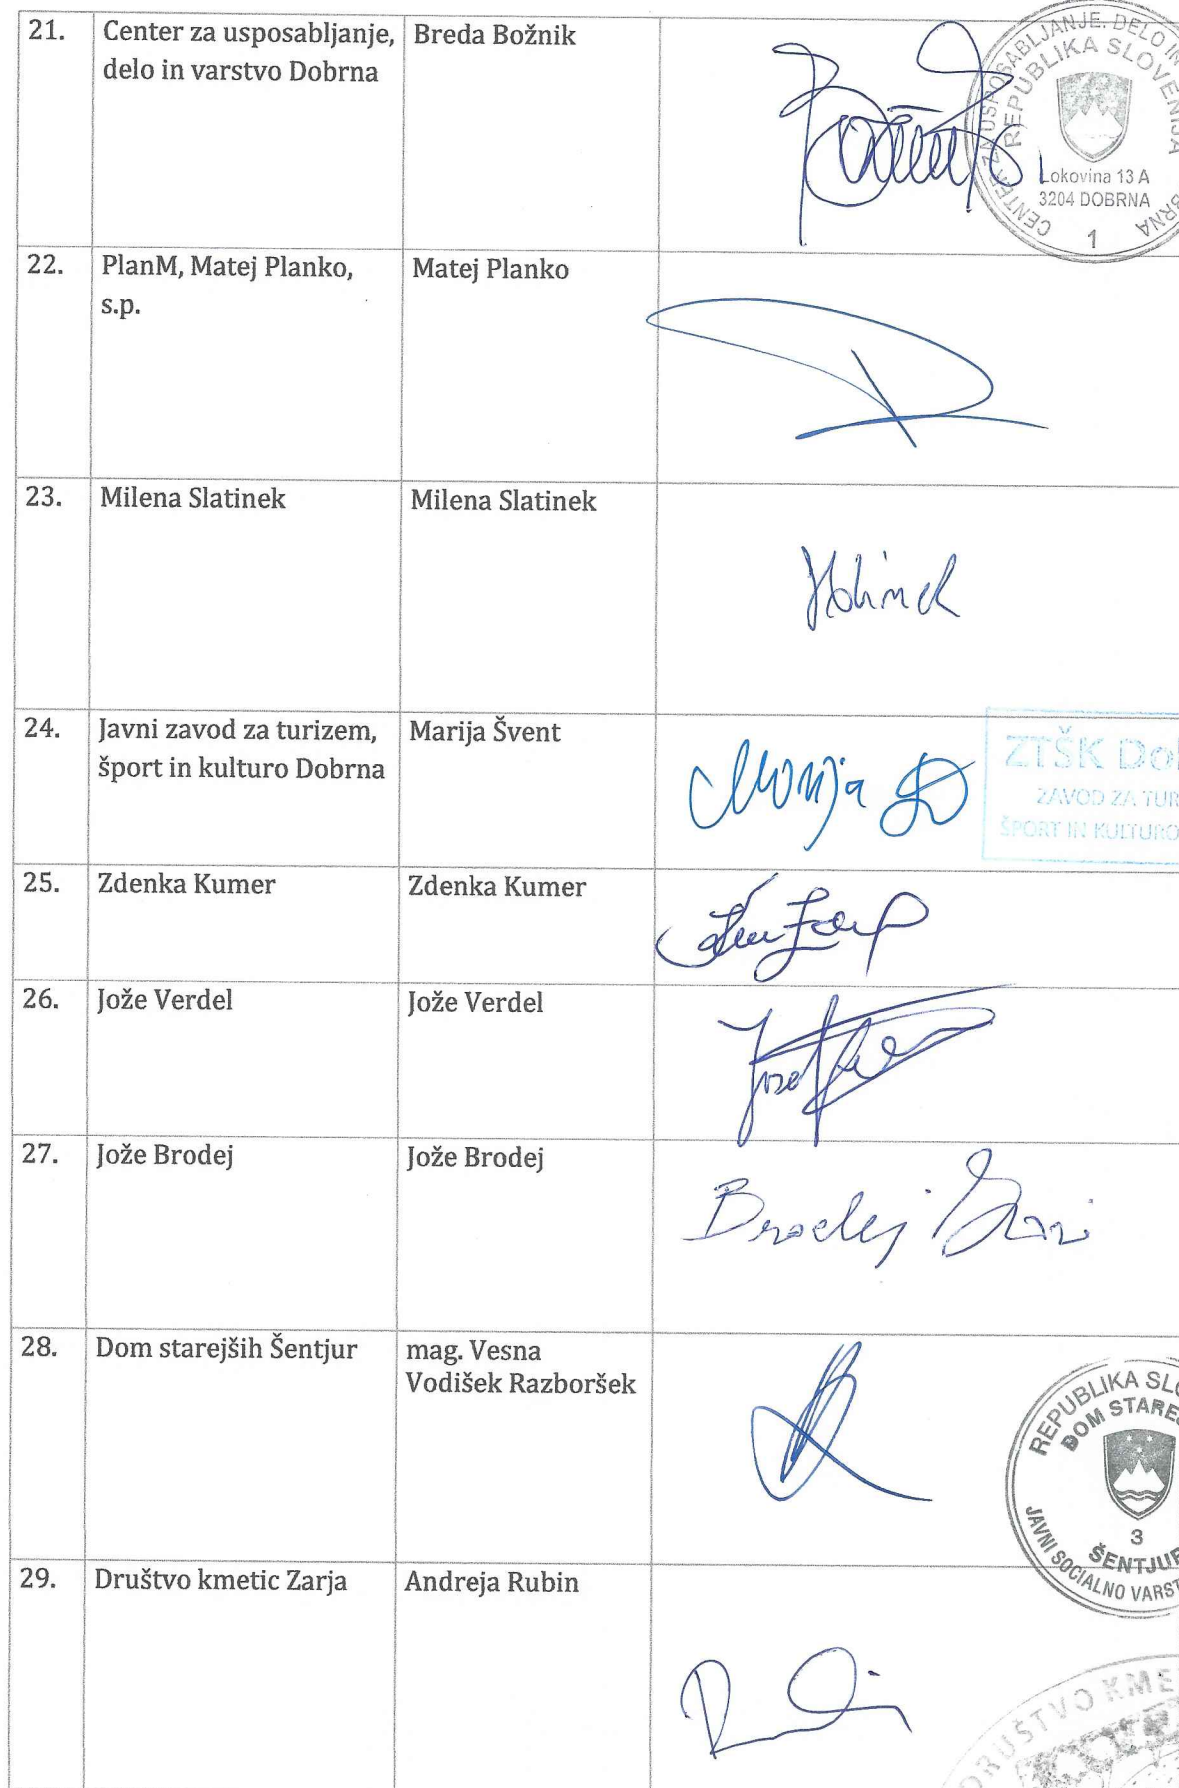 21.
Center za usposabljanje,
delo in varstvo Dobrna
Breda Božnik
CENTER ZA USPOSABLJANJE, DELO IN
REPUBLIKA SLOVENIJA
Lokovina 13 A
3204 DOBRNA
1
22.
PlanM, Matej Planko,
s.p.
Matej Planko
23.
Milena Slatinek
Milena Slatinek
24.
Javni zavod za turizem,
šport in kulturo Dobrna
Marija Švent
Marija
ZTŠK Do
ZAVOD ZA TUR
ŠPORT IN KULTURO
25.
Zdenka Kumer
Zdenka Kumer
26.
Jože Verdel
Jože Verdel
27.
Jože Brodej
Jože Brodej
Brodej
28.
Dom starejših Šentjur
mag. Vesna
Vodišek Razboršek
REPUBLIKA SLO
DOM STAREJ
3
ŠENTJUR
JAVNI SOCIALNO VARST
29.
Društvo kmetic Zarja
Andreja Rubin
DRUŠTVO KME